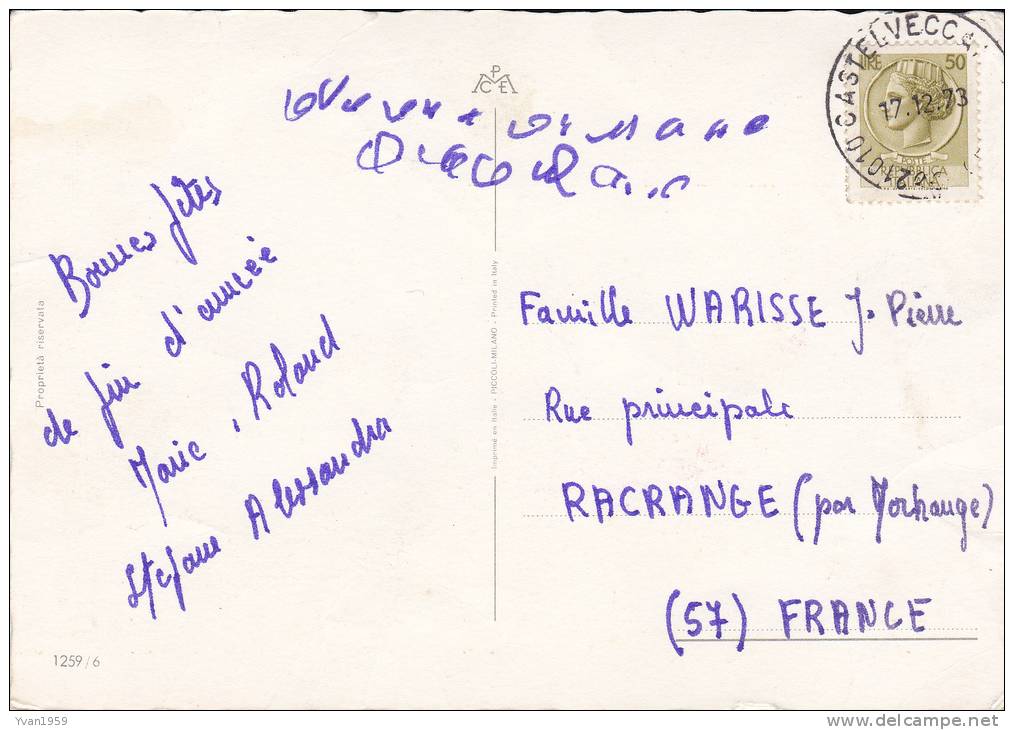 Bonnes fêtes
de fin d'année
Marie, Roland
Stefane Alessandra
P
C E
M
LIRE 50
POSTE
21010 CASTELVECCA
17.12.73
Famille WARISSE J. Pierre
Rue principale
RACRANGE (par Morhange)
(57) FRANCE
Proprietà riservata
Imprimé en Italie - PICCOLI-MILANO - Printed in Italy
1259/6
Yvan1959
delcampe.net